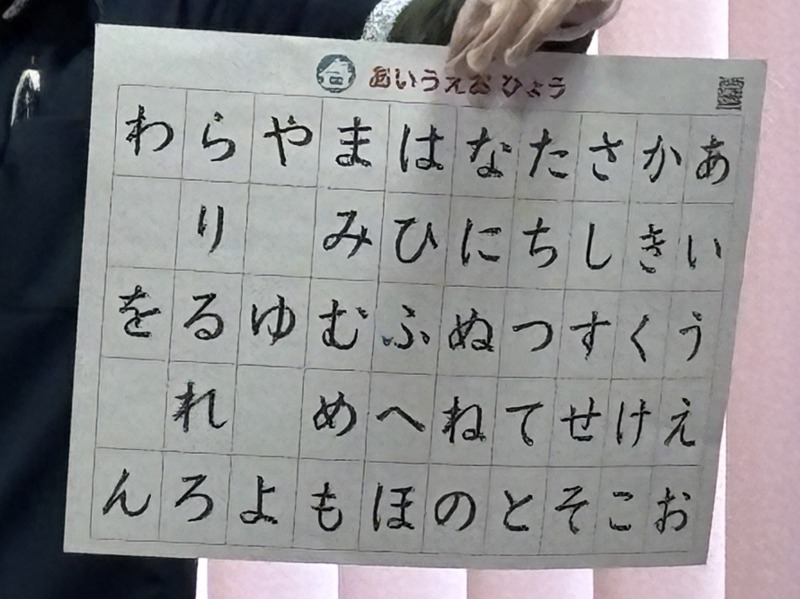 あいうえおひょう
わらやまはなたさかあ
りみひにちしきい
をるゆむふぬつすくう
れめへねてせけえ
んろよもほのとそこお